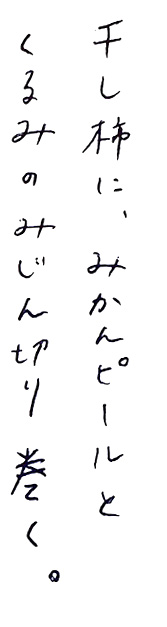 干し柿に、みかんピールと
くるみのみじん切り巻く。